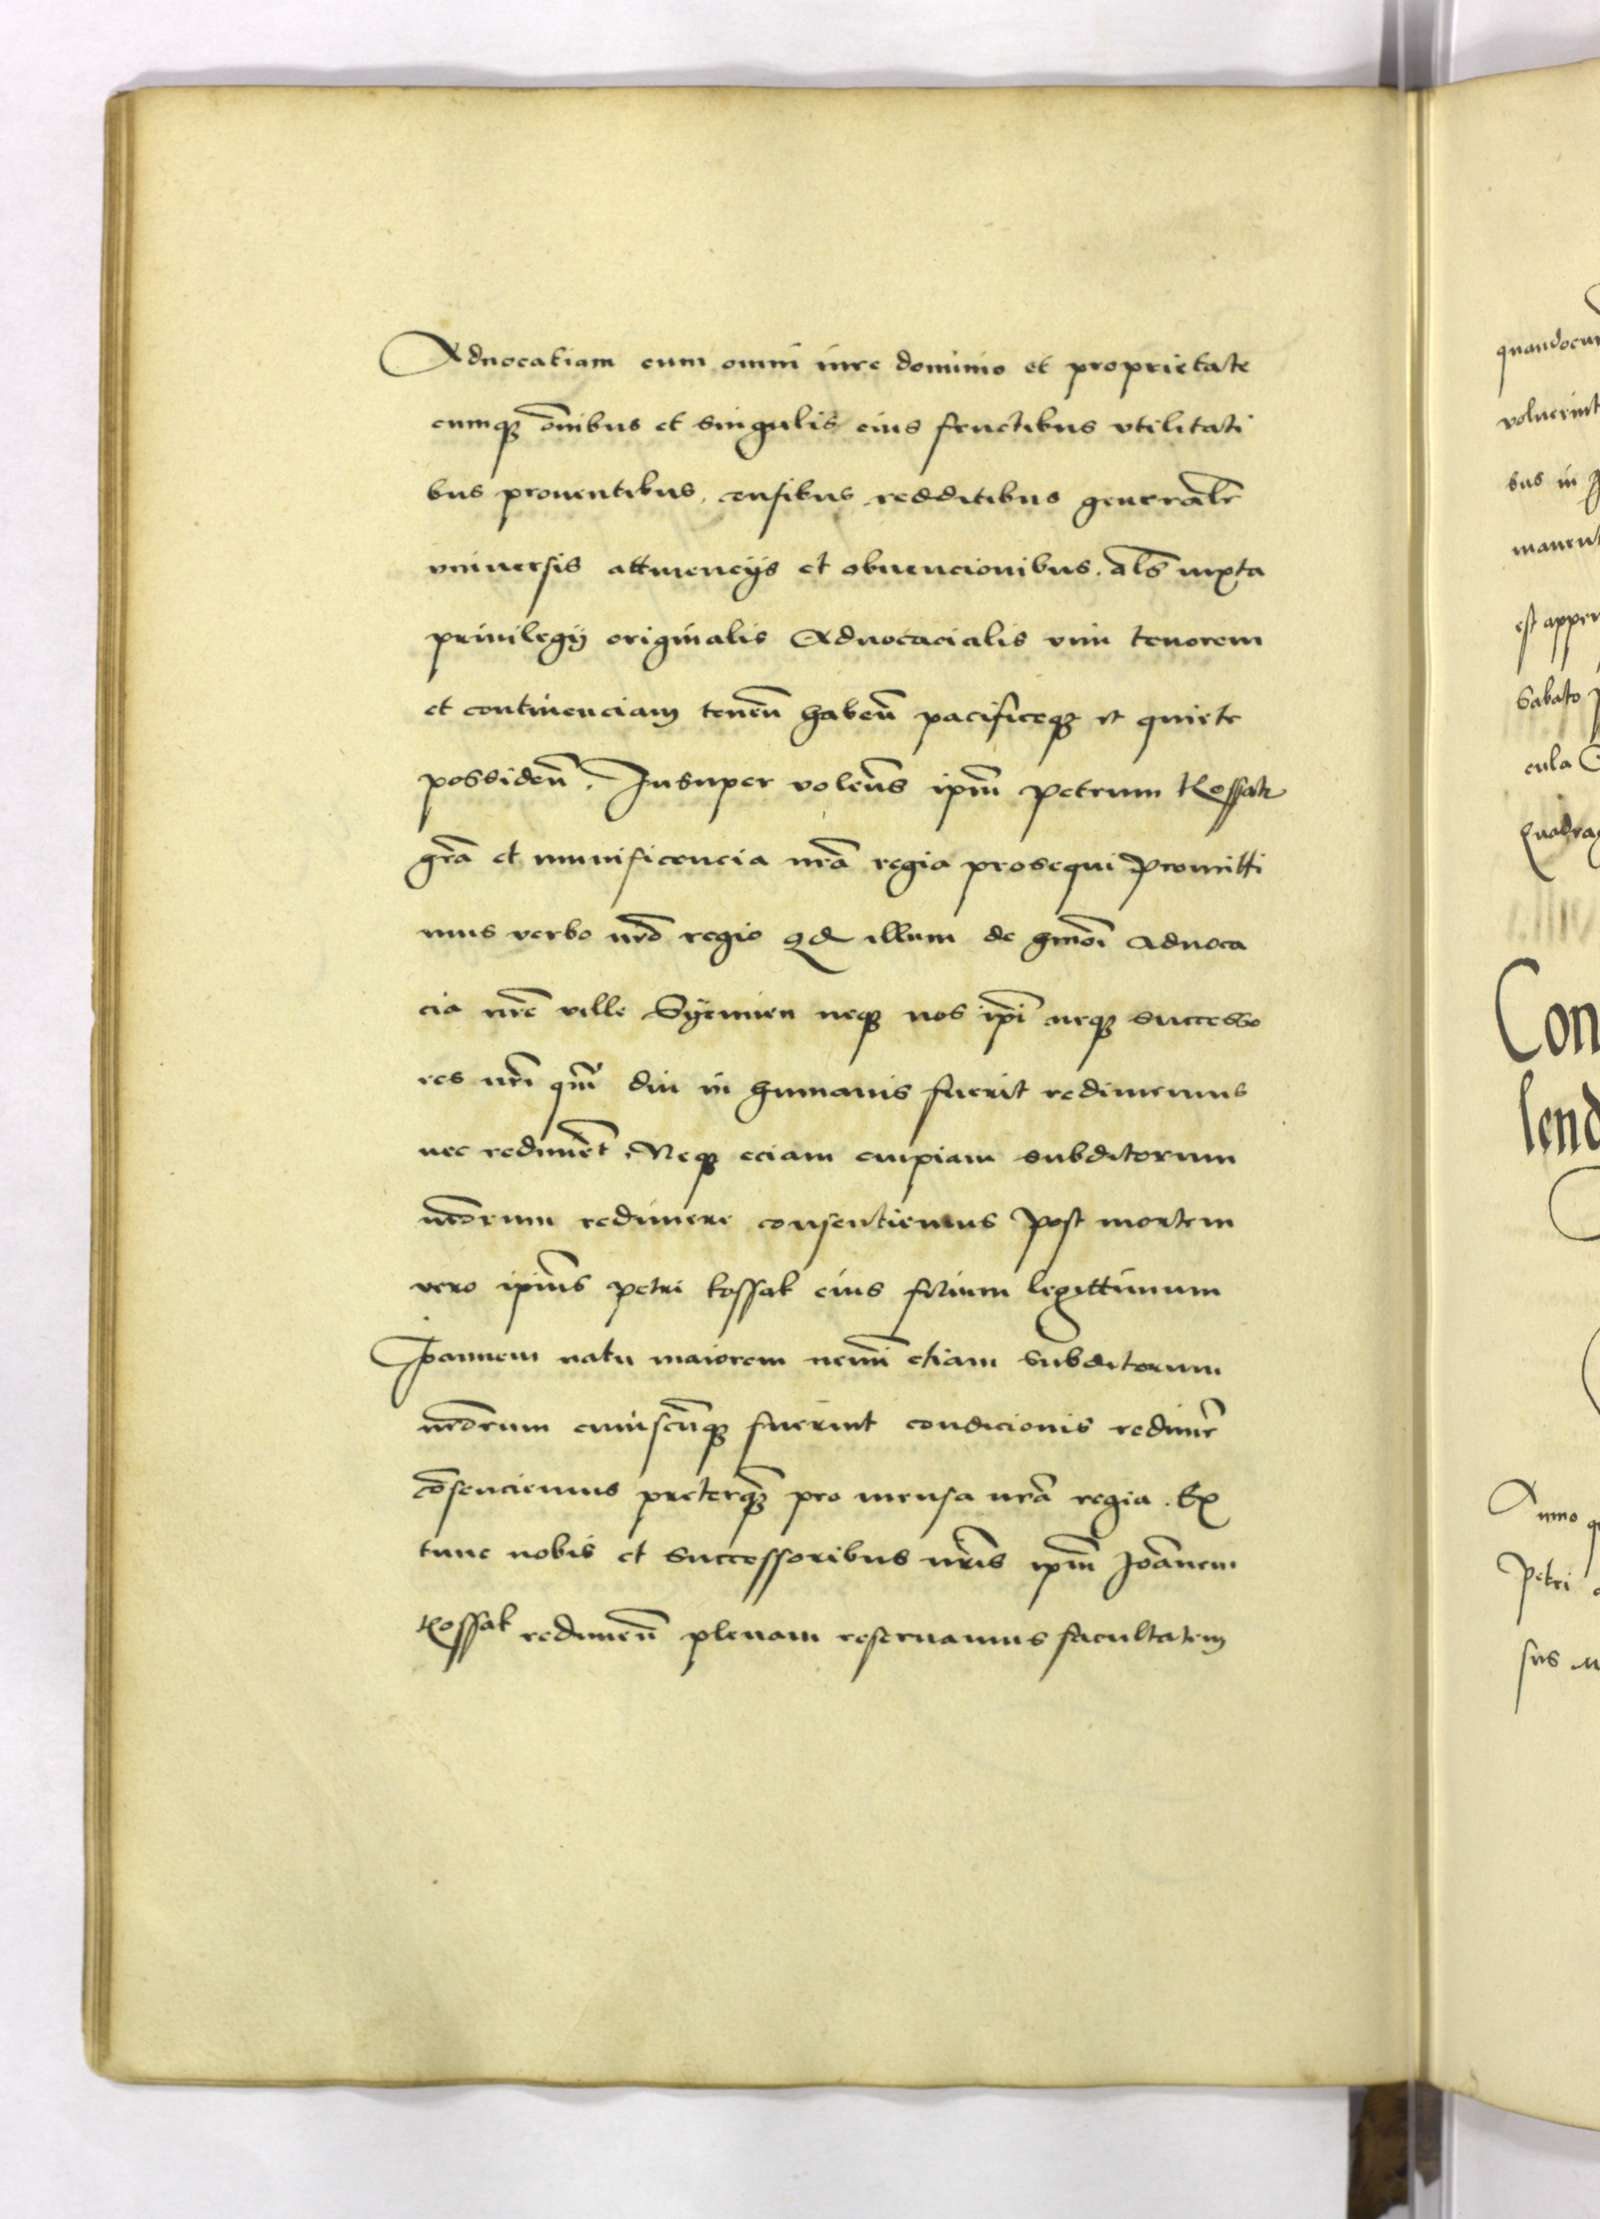 Aduocatiam cum omni iure dominio et proprietate
cumqȝ om̄ibus et singulis eius fructibus vtilitati
bus prouentibus, censibus redditibus generalr̄
vniuersis attinencijs et obuencionibus. als̄ iuxta
priuilegij originalis Aduocacialis vim tenorem
et continenciam tenen̄ haben̄ pacificeqȝ et quiete
possiden̄. Insuper volen̄s ip̄m Petrum Kossak
gr̄a et munificencia nr̄a regia prosequi Promitti
mus verbo nr̄o regio qd illum de gm̄oi aduoca
cia nr̄e ville Syennen neqȝ nos ip̄i neqȝ successo
res nr̄i qm̄ diu in humanis fuerit redimemus
nec redimēt. Neqȝ eciam cuipiam subditorum
nr̄orum redimere consentiemus Post mortem
vero ipīus Petri kossak eius filium legittimum
Joannem natu maiorem nemī etiam subditorum
nr̄orum cuiuscūqȝ fuerint condicionis redimer̄
cōsenciemus preterqȝ̄ pro mensa nr̄a regia. Ex
tunc nobis et successoribus nr̄is ip̄m Joānnem
Kossak redimen̄ plenam reseruamus facultatem
quandocun
voluerint
bus in
manent
est appen
Sabato
cula
Quadrag
Con
lend
Anno q
Petri
sus